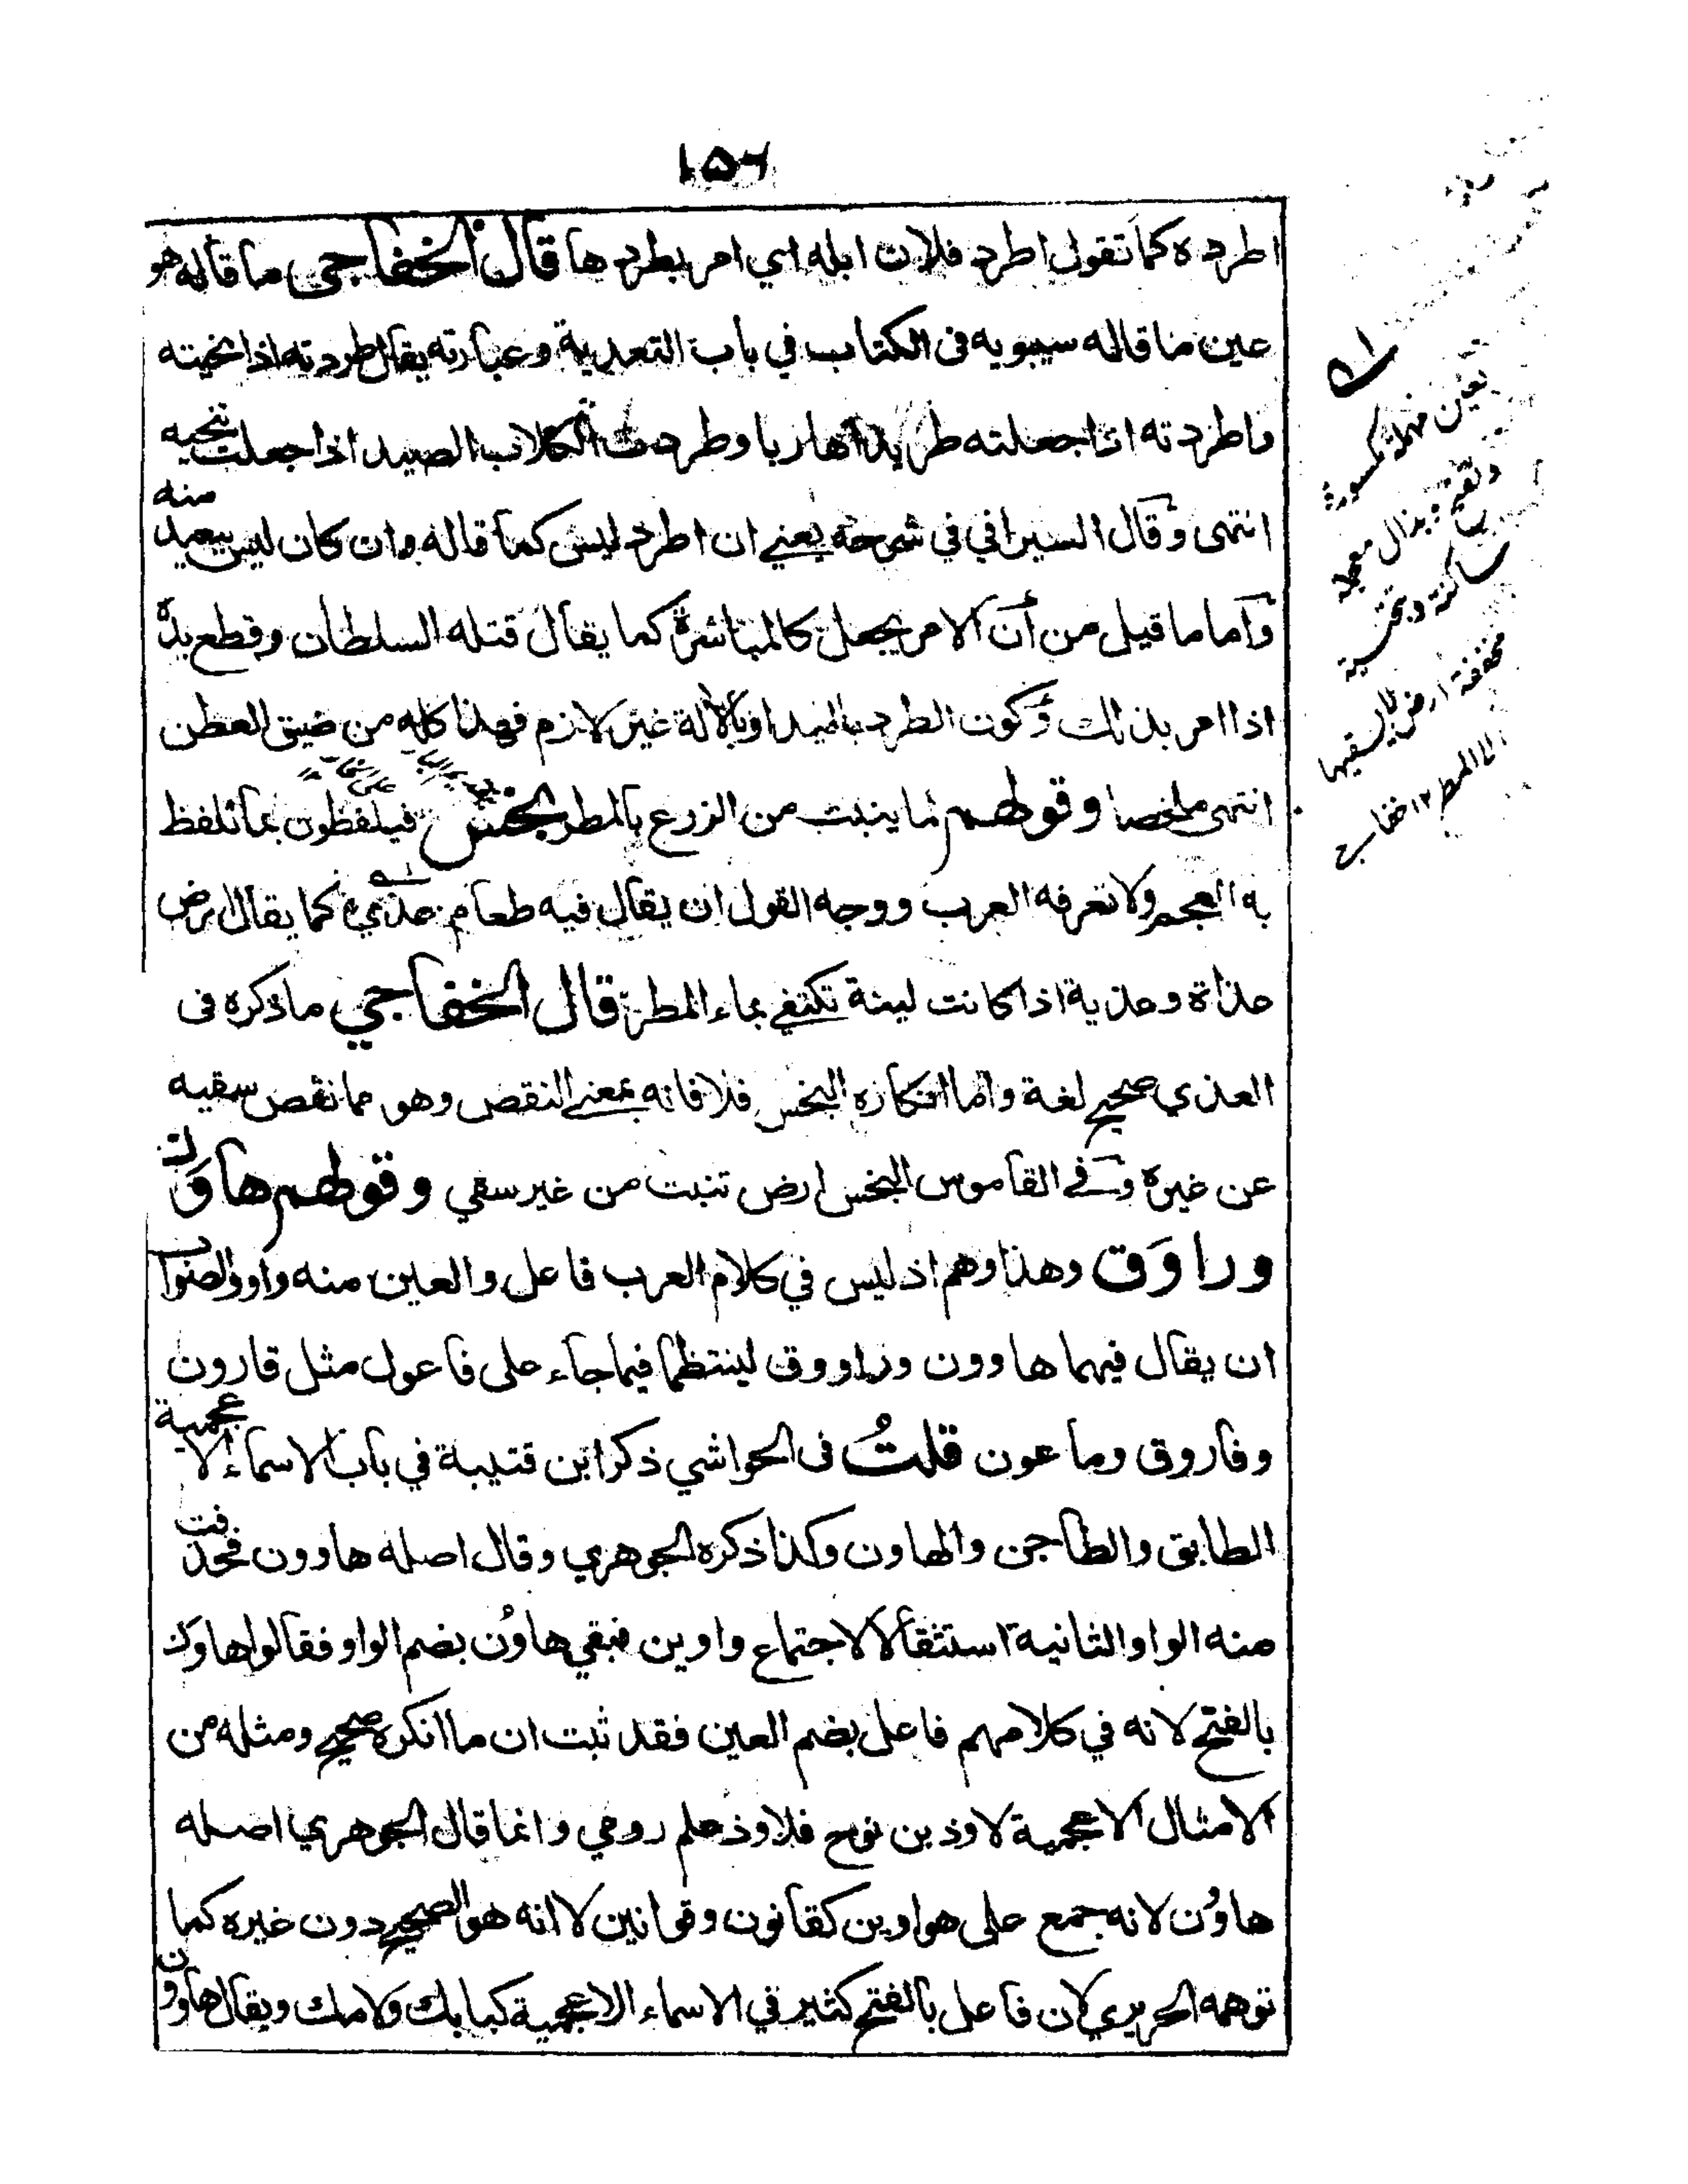 ١٥٦
اطرده كما تقول اطرد فلان ابله اي امر بطردها قال الخفاجي ما قاله هو
عين ما قاله سيبويه فى الكتاب في باب التعدية وعبارته يقال طردته اذا نحيته
واطردته اذا جعلته طريدا هاربا وطردت الكلاب الصيد اذا جعلت تنحيه
انتهى وقال السيرافي في شرحه يعني ان اطرد ليس كما قاله وان كان ليس ببعيد منه
واما ما قيل من أن الامر يجعل كالمباشرة كما يقال قتله السلطان وقطع يده
اذا امر بذلك وكون الطرد باليد او بالالة غير لازم فهذا كله من ضيق العطن
انتهى ملخصا وقولهم لما ينبت من الزرع بالمطر البخس فيلفظون بما تلفظ
به العجم ولا تعرفه العرب ووجه القول ان يقال فيه طعام عذي كما يقال ارض
عذاة وعذية اذا كانت لينة تكتفي بماء المطر قال الخفاجي ما ذكره فى
العذي صحيح لغة واما انكاره البخس فلا فانه بمعنى النقص وهو مما نقص سقيه
عن غيره وفي القاموس البخس ارض تنبت من غير سقي وقولهم هاوَن
وراوَق وهذا وهم اذ ليس في كلام العرب فاعل والعين منه واو والصواب
ان يقال فيهما هاوون وراووق لينتظما فيما جاء على فاعول مثل قارون
وفاروق وماعون قلتُ فى الحواشي ذكر ابن قتيبة في باب الاسماء الاعجمية
الطابق والطاجن والهاون وكذا ذكره الجوهري وقال اصله هاوون فحذفت
منه الواو الثانية استثقالا لاجتماع واوين فبقي هاوُن بضم الواو فقالوا هاون
بالفتح لانه في كلامهم فاعل بضم العين فقد ثبت ان ما انكره صحيح ومثله من
الامثال الاعجمية لاوذ بن نوح فلاوذ علم رومي وانما قال الجوهري اصله
هاوُن لانه جمع على هواوين كقانون وقوانين لا انه هو الصحيح دون غيره كما
توهمه الحريري لان فاعل بالفتح كثير في الاسماء الاعجمية كبابك ولامك ويقال هاوون
بعين مهملة مكسورة
وتفتح وبذال معجمة
ساكنة وتحتية
مخففة ارض
الا المطر ١٢ خفاجي